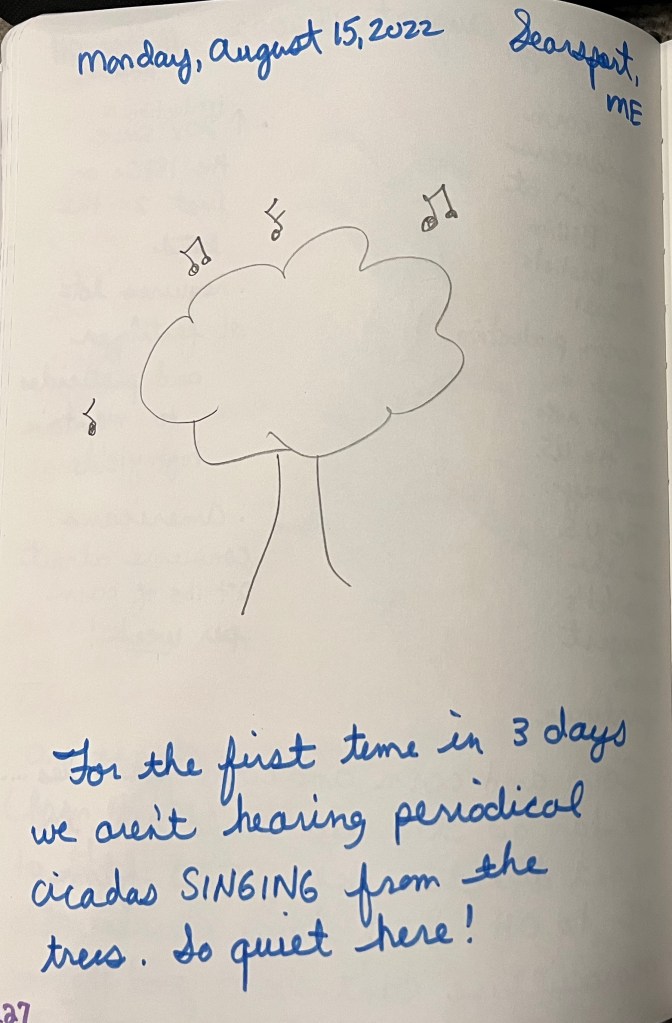 Monday, August 15, 2022
Searsport,
ME
For the first time in 3 days
we aren't hearing periodical
cicadas SINGING from the
trees. So quiet here!
27